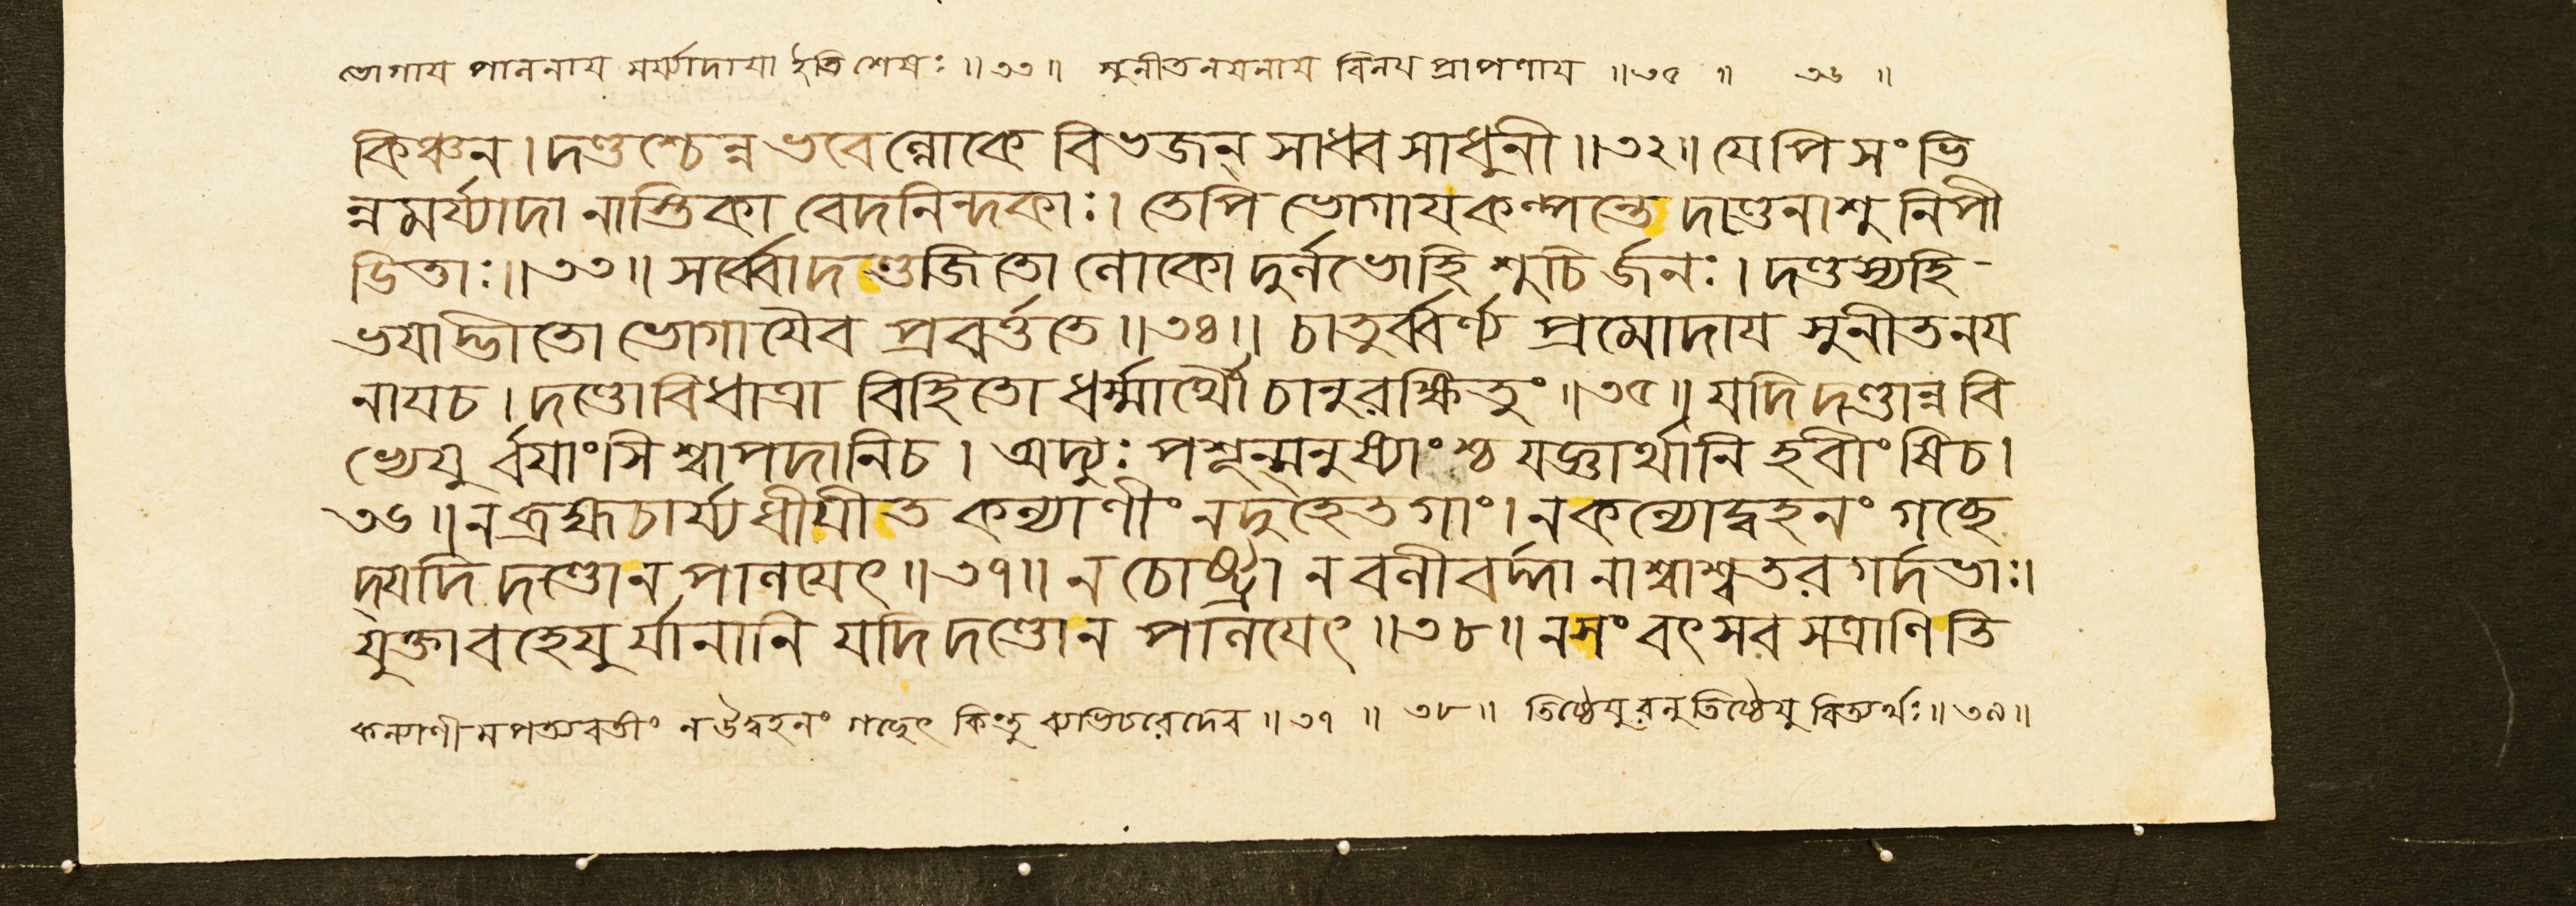 ভোগায পাননায মর্য্যাদাযা ইতি শেষঃ ॥৩৩॥ সুনীতনযনায বিনয প্রাপণায ॥৩৫॥ ৩৬॥
কিঞ্চন। দণ্ডশ্চেন্ন ভবেল্লোকে বিভজন্ সাধ্বসাধুনী॥৩২॥ যেপি সংভি
ন্নমর্য্যাদা নাস্তিকা বেদনিন্দকাঃ। তেপি ভোগায কল্পন্তে দণ্ডেনাশু নিপী
ডিতাঃ॥৩৩॥ সর্ব্বোদণ্ডজিতো লোকো দুর্লভোহি শুচির্জনঃ। দণ্ডস্যহি
ভযাদ্ভীতো ভোগাযৈব প্রবর্ত্ততে॥৩৪॥ চাতুর্ব্বর্ণ্য প্রমোদায সুনীতনয
নাযচ। দণ্ডোবিধাত্রা বিহিতো ধর্ম্মার্থৌ চানুরক্ষিতুং॥৩৫॥ যদি দণ্ডান্নবি
ভ্যেযুর্ব্বযাংসি শ্বাপদানিচ। অদ্যুঃ পশূন্মনুষ্যাংশ্চ যজ্ঞার্থানি হবীংষিচ।
৩৬॥ ন ব্রহ্মচার্য্যধীযীত কল্যাণীং নদুহেতগাং। নকন্যোদ্বহনং গচ্ছে
দ্যদি দণ্ডোন পালযেৎ॥৩৭॥ ন চোষ্ট্রা ন বলীবর্দ্দা নাশ্বাশ্বতরগর্দভাঃ।
যুক্তাবহেযুর্যানানি যদি দণ্ডোন পালযেৎ॥৩৮॥ নসংবৎসরসত্রাণি তি
কল্যাণীমপত্যবতীং ন উদ্বহনং গচ্ছেৎ কিন্তু ব্যভিচরেদেব॥৩৭॥ ৩৮॥ তিষ্ঠেযুরনুতিষ্ঠেযুরিত্যর্থঃ॥৩৯॥